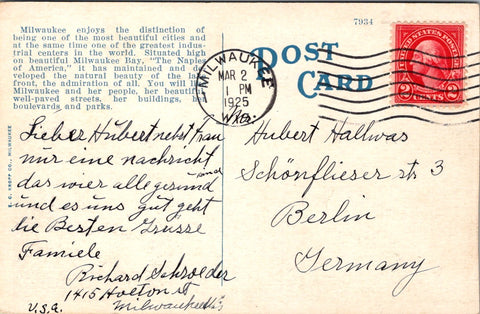 Milwaukee enjoys the distinction of
being one of the most beautiful cities and
at the same time one of the greatest indus-
trial centers in the world. Situated high
on beautiful Milwaukee Bay, "The Naples
of America," it has maintained and de-
veloped the natural beauty of the lake
front, the admiration of all. You will like
Milwaukee and her people, her beautiful
well-paved streets, her buildings, her
boulevards and parks.
7934
POST
CARD
MILWAUKEE
MAR 2
1 PM
1925
WIS.
UNITED STATES POSTAGE
2 CENTS 2
E. C. KROPP CO., MILWAUKEE
Lieber Hubert nebst Frau
nur eine nachricht
das wier alle gesund
sind
und es uns gut geht
die Besten Grusse
Famiele
Richard Schroeder
1415 Holton St
Milwaukee Wis
U.S.a.
Hubert Hallwas
Schönflieser str 3
Berlin
Germany